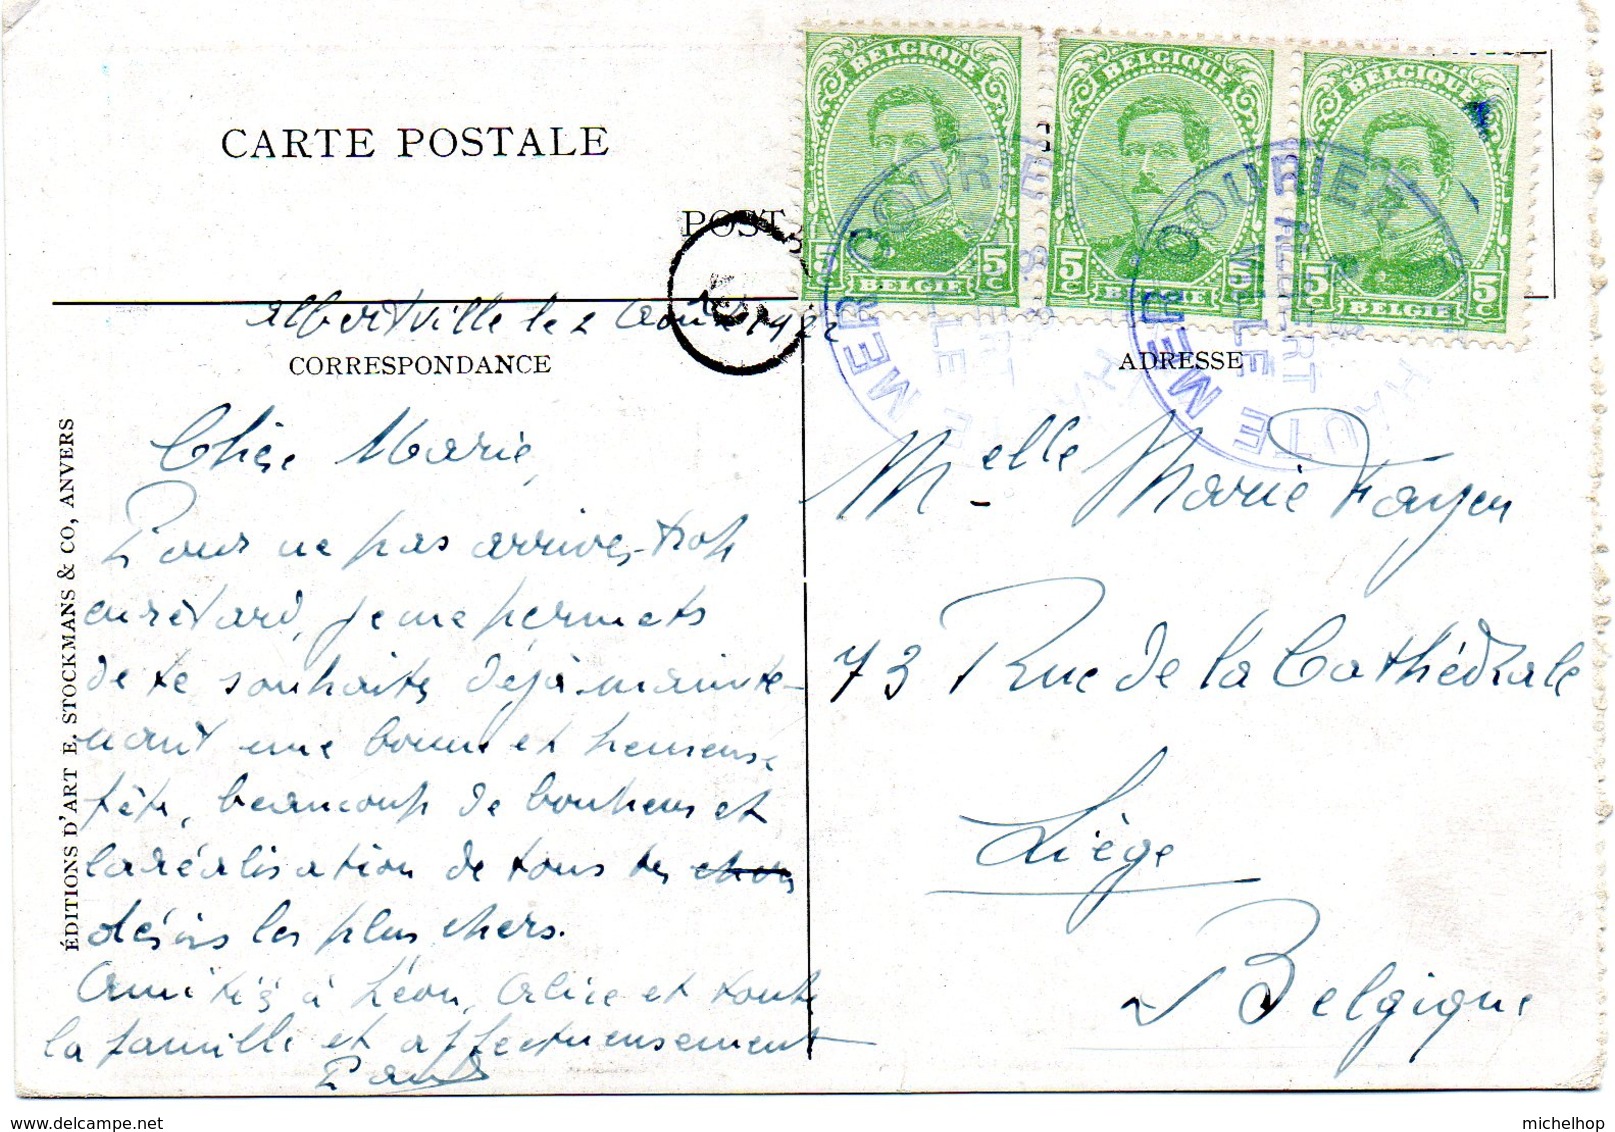 CARTE POSTALE
BELGIQUE
5c 5c
BELGIE
BELGIQUE
5c 5c
BELGIE
BELGIQUE
5c 5c
BELGIE
COURIER
MER
COURIER
MER
HAUTE
ALBERT
VILLE
Albertville le 2 Août 1922
CORRESPONDANCE
ADRESSE
ÉDITIONS D'ART E. STOCKMANS & CO, ANVERS
Chère Marie,
Pour ne pas arriver trop
en retard, je me permets
de te souhaiter déjà mainte-
nant une bonne et heureuse
fête, beaucoup de bonheur et
la réalisation de tous tes
désirs les plus chers.
Amitiés à Léon, Alice et toute
la famille et affectueusement
Paul
Melle Marie Fayen
73 Rue de la Cathédrale
Liège
Belgique
michelhop